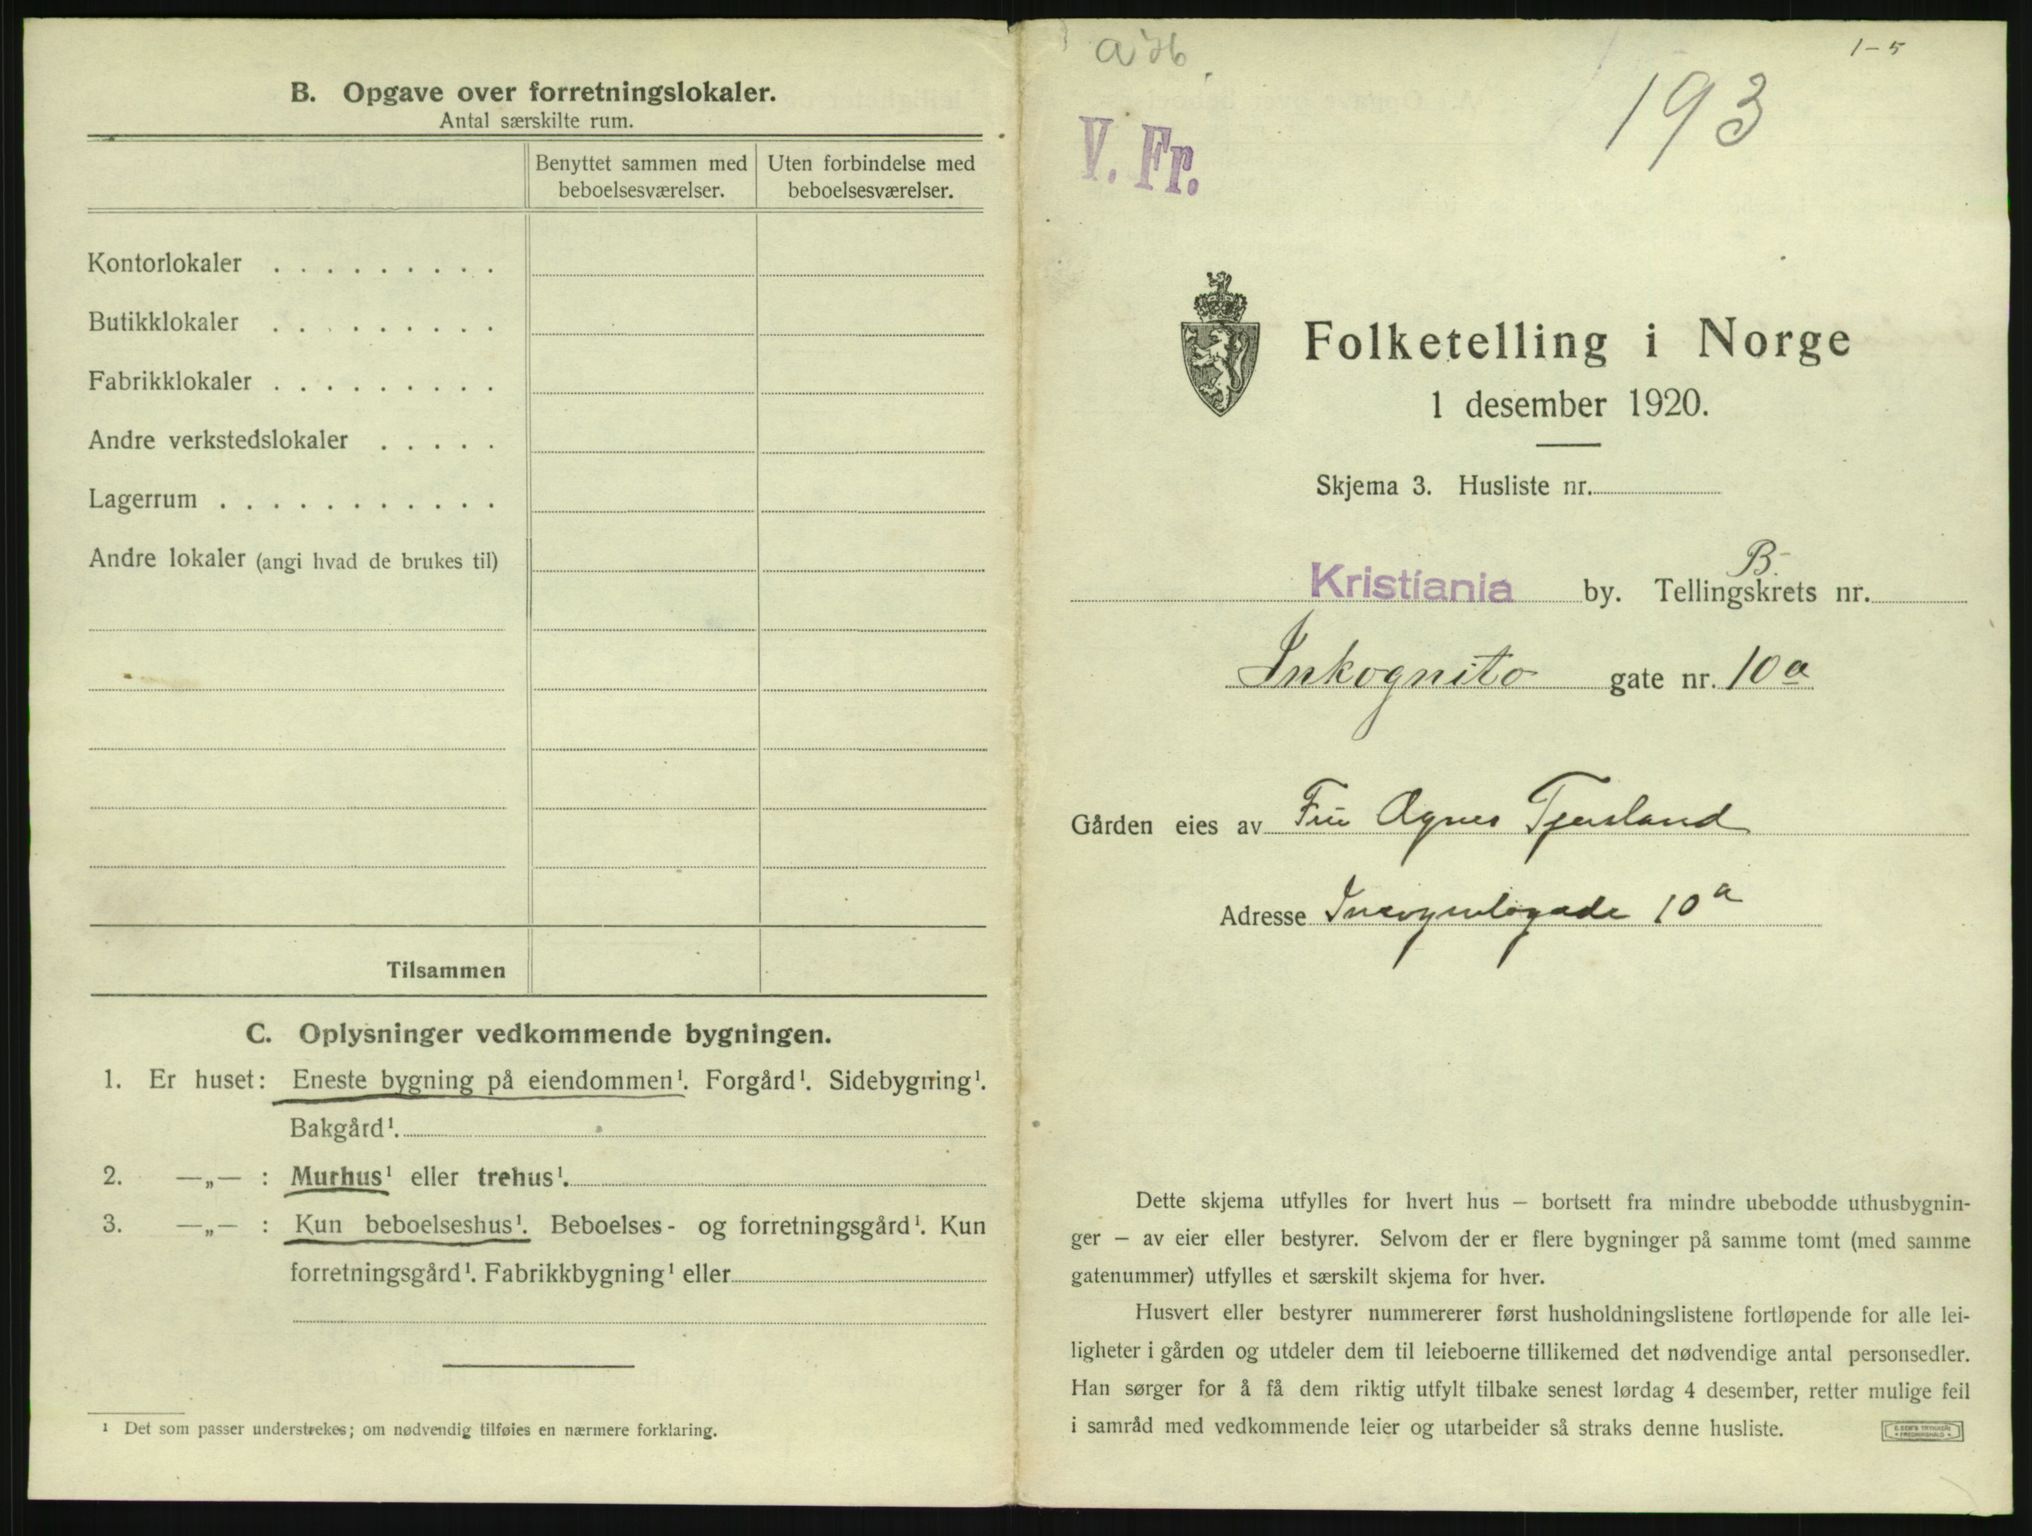 B. Opgave over forretningslokaler.
Antal særskilte rum.
Benyttet sammen med beboelsesværelser.
Uten forbindelse med beboelsesværelser.
Kontorlokaler . . . . . . . . .
Butikklokaler . . . . . . . . .
Fabrikklokaler . . . . . . . . .
Andre verkstedslokaler . . . . .
Lagerrum . . . . . . . . . . .
Andre lokaler (angi hvad de brukes til)
Tilsammen
C. Oplysninger vedkommende bygningen.
1. Er huset: Eneste bygning på eiendommen¹. Forgård¹. Sidebygning¹.
Bakgård¹.
2. —„— : Murhus¹ eller trehus¹.
3. —„— : Kun beboelseshus¹. Beboelses- og forretningsgård¹. Kun
forretningsgård¹. Fabrikkbygning¹ eller
¹ Det som passer understrekes; om nødvendig tilføies en nærmere forklaring.
1-5
193
V. Fr.
Folketelling i Norge
1 desember 1920.
Skjema 3. Husliste nr.
B.
Kristiania by. Tellingskrets nr.
Inkognito gate nr. 10a
Gården eies av Fru Agnes Tjersland
Adresse Incognitogade 10a
Dette skjema utfylles for hvert hus – bortsett fra mindre ubebodde uthusbygnin-
ger – av eier eller bestyrer. Selvom der er flere bygninger på samme tomt (med samme
gatenummer) utfylles et særskilt skjema for hver.
Husvert eller bestyrer nummererer først husholdningslistene fortløpende for alle lei-
ligheter i gården og utdeler dem til leieboerne tillikemed det nødvendige antal personsedler.
Han sørger for å få dem riktig utfylt tilbake senest lørdag 4 desember, retter mulige feil
i samråd med vedkommende leier og utarbeider så straks denne husliste.